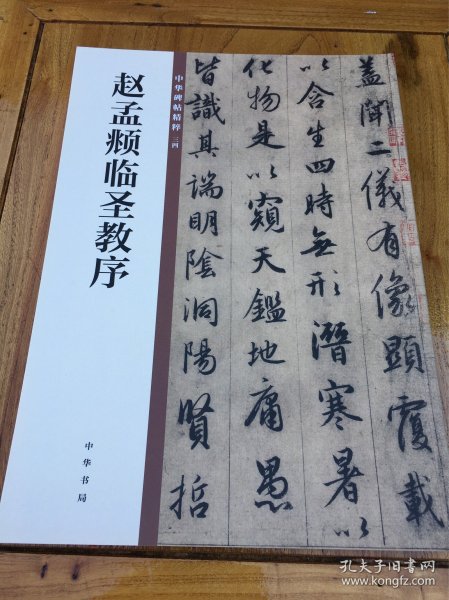 赵孟頫临圣教序
中华书局
中华碑帖精粹 三四
盖闻二儀有像顯覆載
以含生四時無形潛寒暑以
化物是以窺天鑑地庸愚
皆識其端明陰洞陽賢哲
孔夫子旧书网
www.kongfz.com